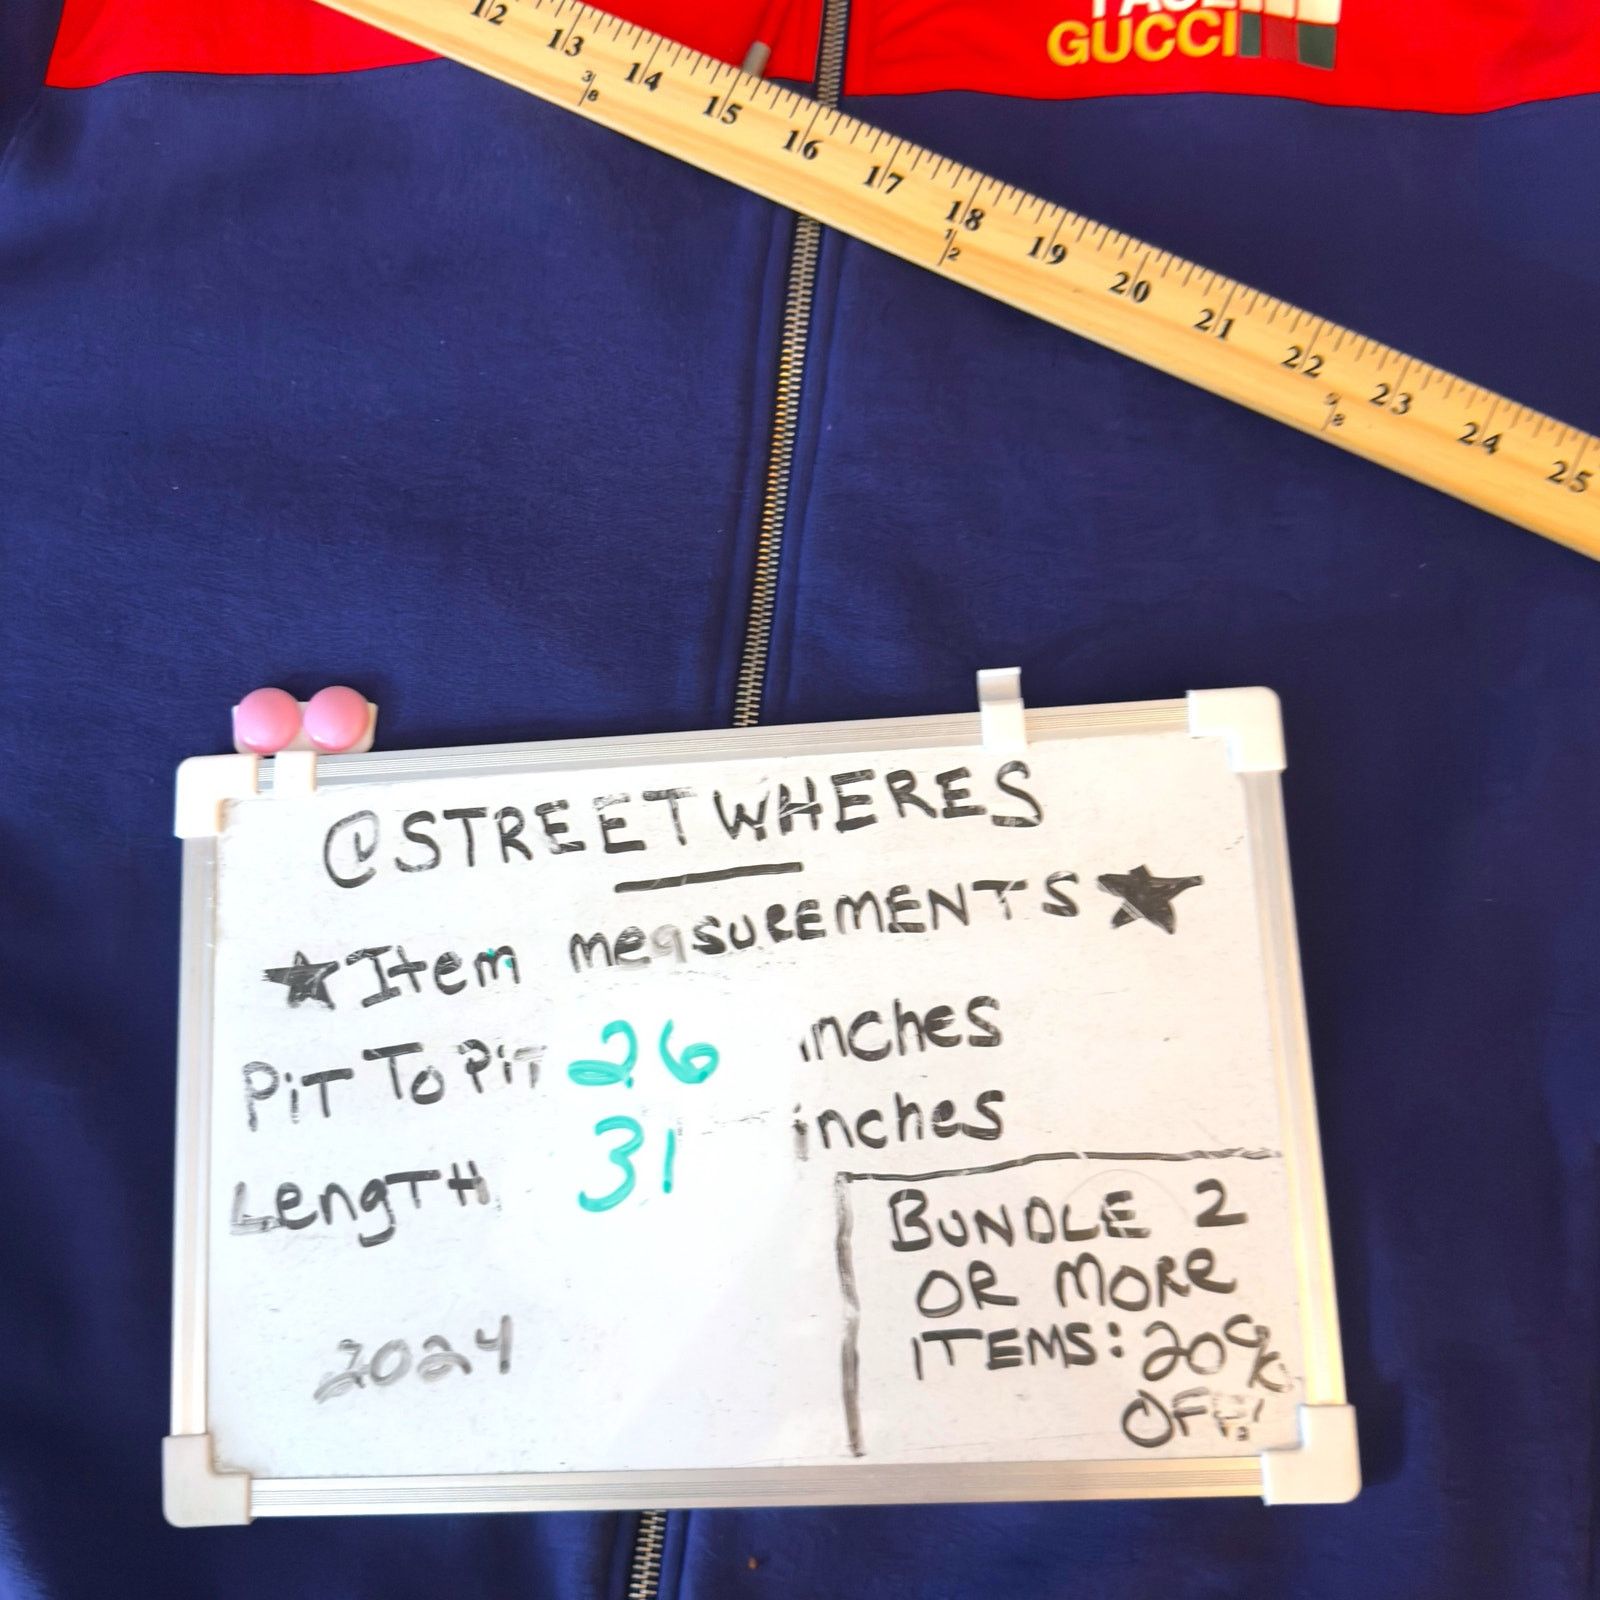 FACE
GUCCI
12 13 14 15 16 17 18 19 20 21 22 23 24 25
3/8 1/2 5/8
@STREETWHERES
★Item meASUREMENTS★
PiT To PiT 26 inches
LengTH 31 inches
2024
BUNDLE 2
OR MORE
ITEMS: 20%
OFF!